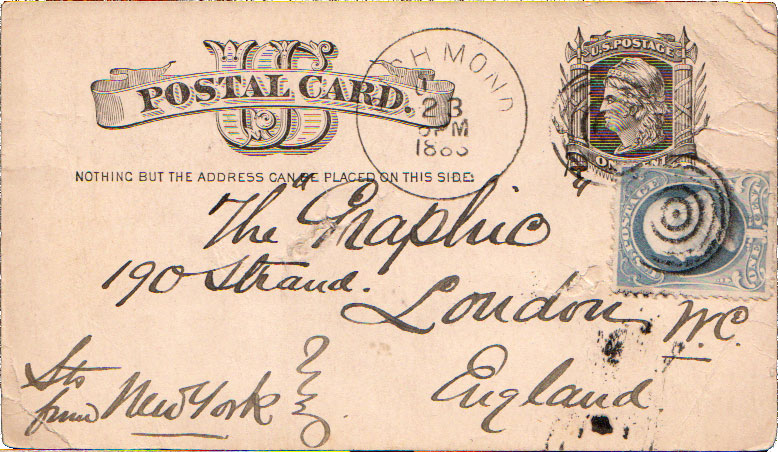 US
POSTAL CARD.
U.S. POSTAGE
ONE CENT
NOTHING BUT THE ADDRESS CAN BE PLACED ON THIS SIDE.
CHMOND
23
PM
188
POSTAGE
The "Graphic
190 Strand.
London W.C.
England
Sts
from New York